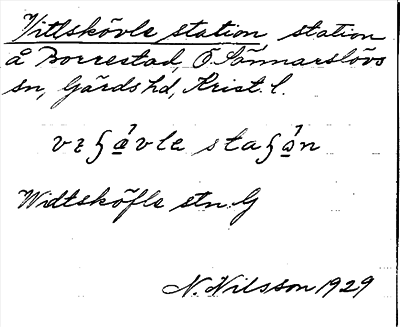 Vittskövle station station
å Borrestad, Ö. Sönnarslövs
sn, Gärds hd, Krist. l.
Widtsköfle stn. G
N. Nilsson 1929